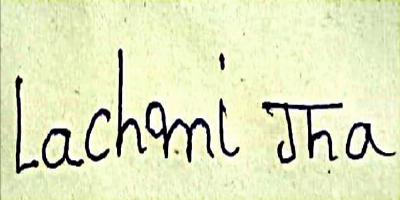 Lachmi Jha